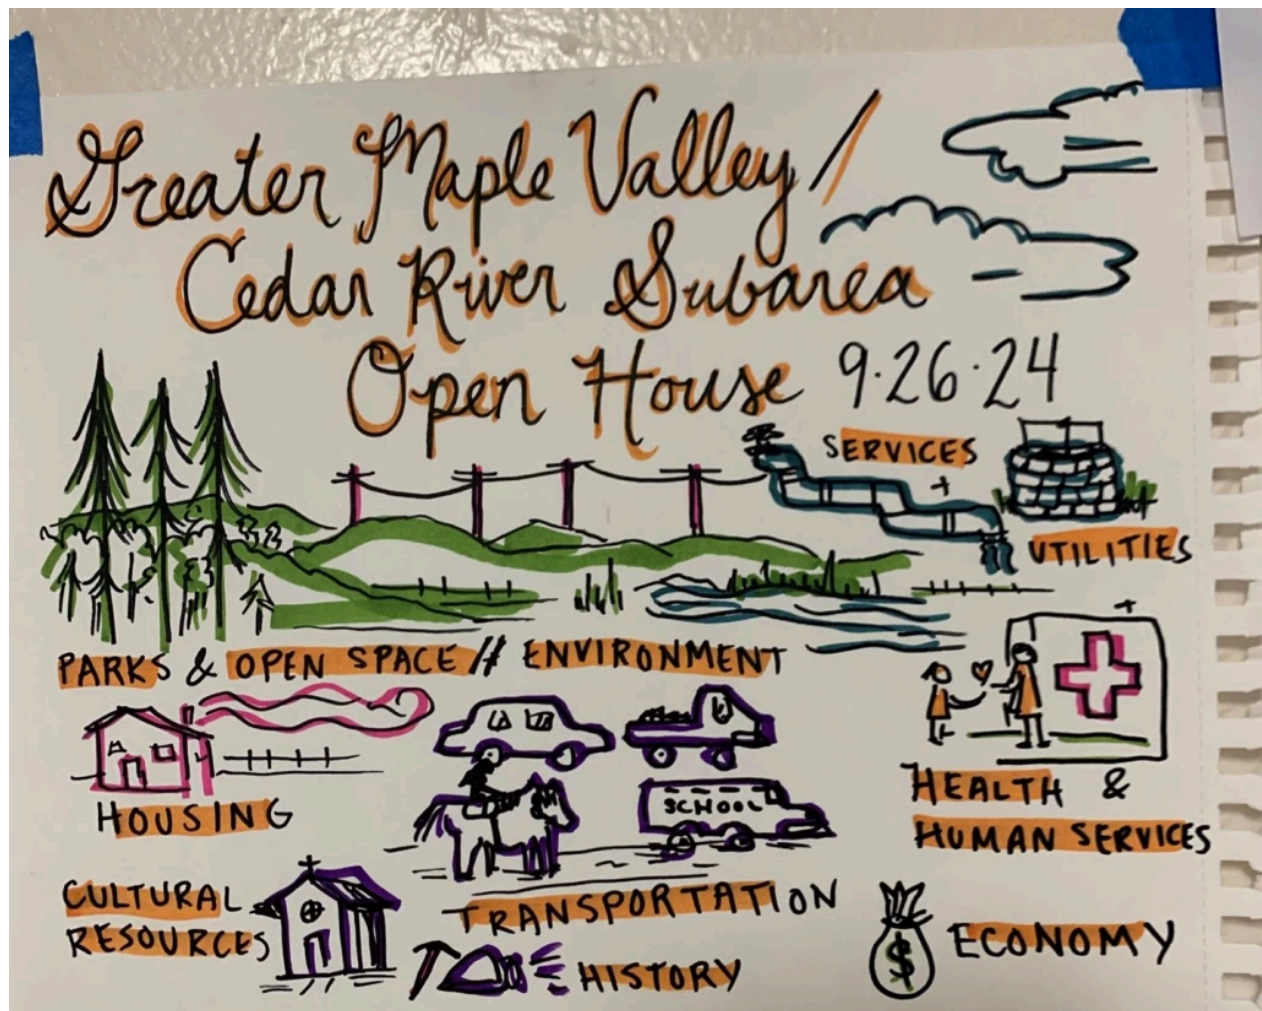 Greater Maple Valley /
Cedar River Subarea
Open House 9.26.24
SERVICES
+
UTILITIES
PARKS & OPEN SPACE // ENVIRONMENT
HOUSING
SCHOOL
TRANSPORTATION
HEALTH &
HUMAN SERVICES
CULTURAL
RESOURCES
HISTORY
$
ECONOMY